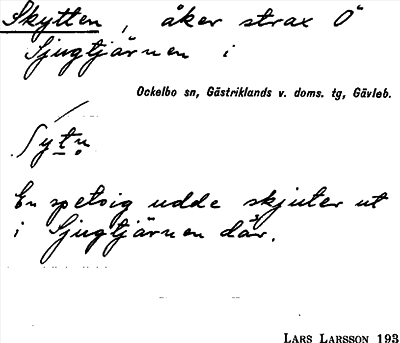 Skytten, åker strax O
Sjugtjärnen i
Ockelbo sn, Gästriklands v. doms. tg, Gävleb.
En spetsig udde skjuter ut
i Sjugtjärnen där.
LARS LARSSON 193